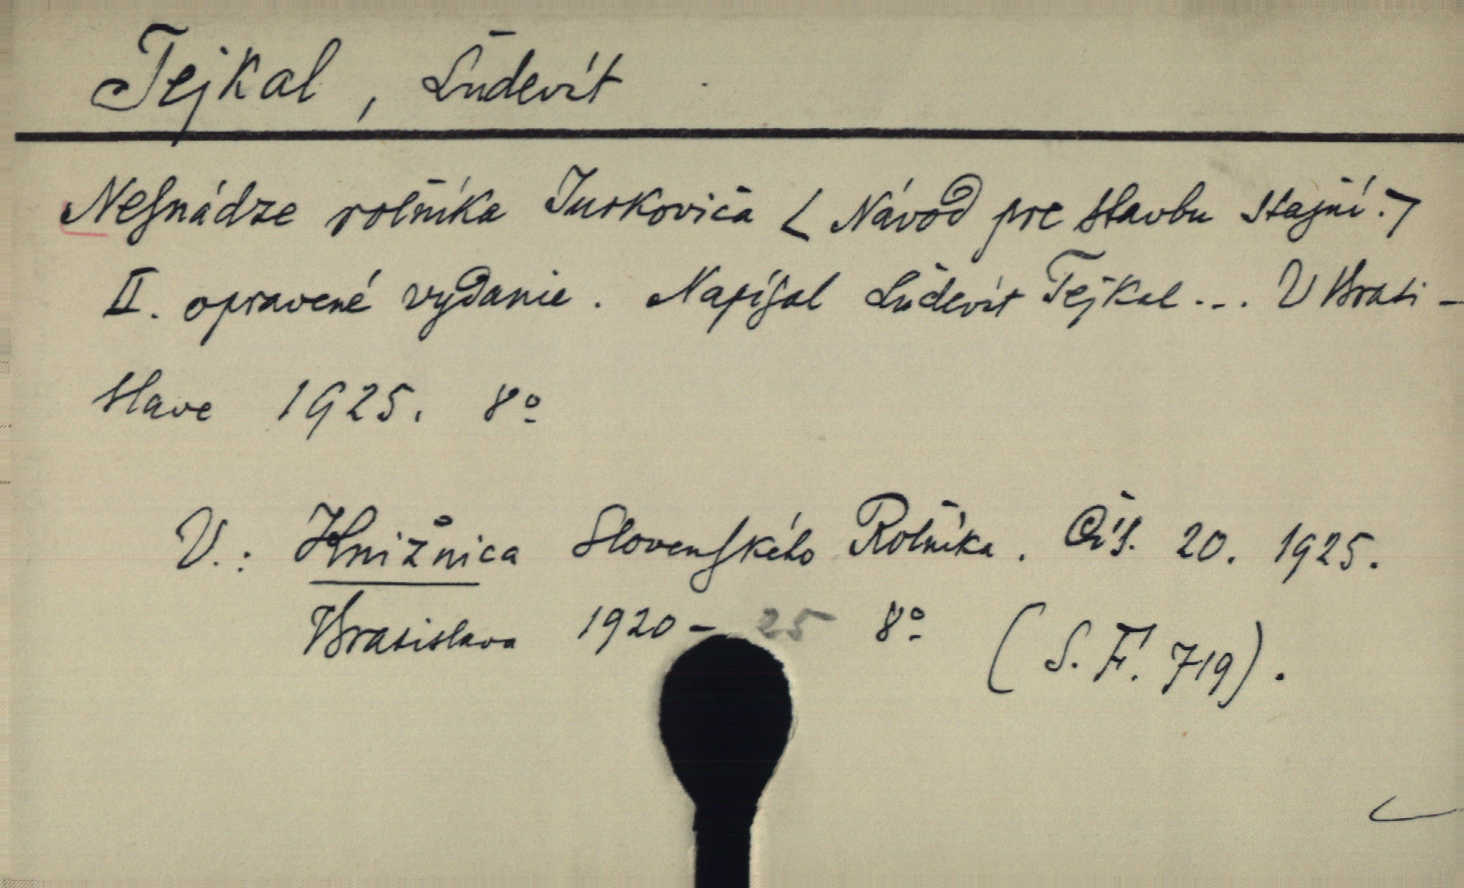 Tejkal, Ľudevít
Nesnádze rolníka Jurkoviča < Návod pre stavbu stajní. >
II. opravené vydanie. Napísal Ľudevít Tejkal ... V Brati-
slave 1925. 8º
V.: Knižnica Slovenského Rolníka. Čís. 20. 1925.
Bratislava 1920- 25 8º (S. F. 719).